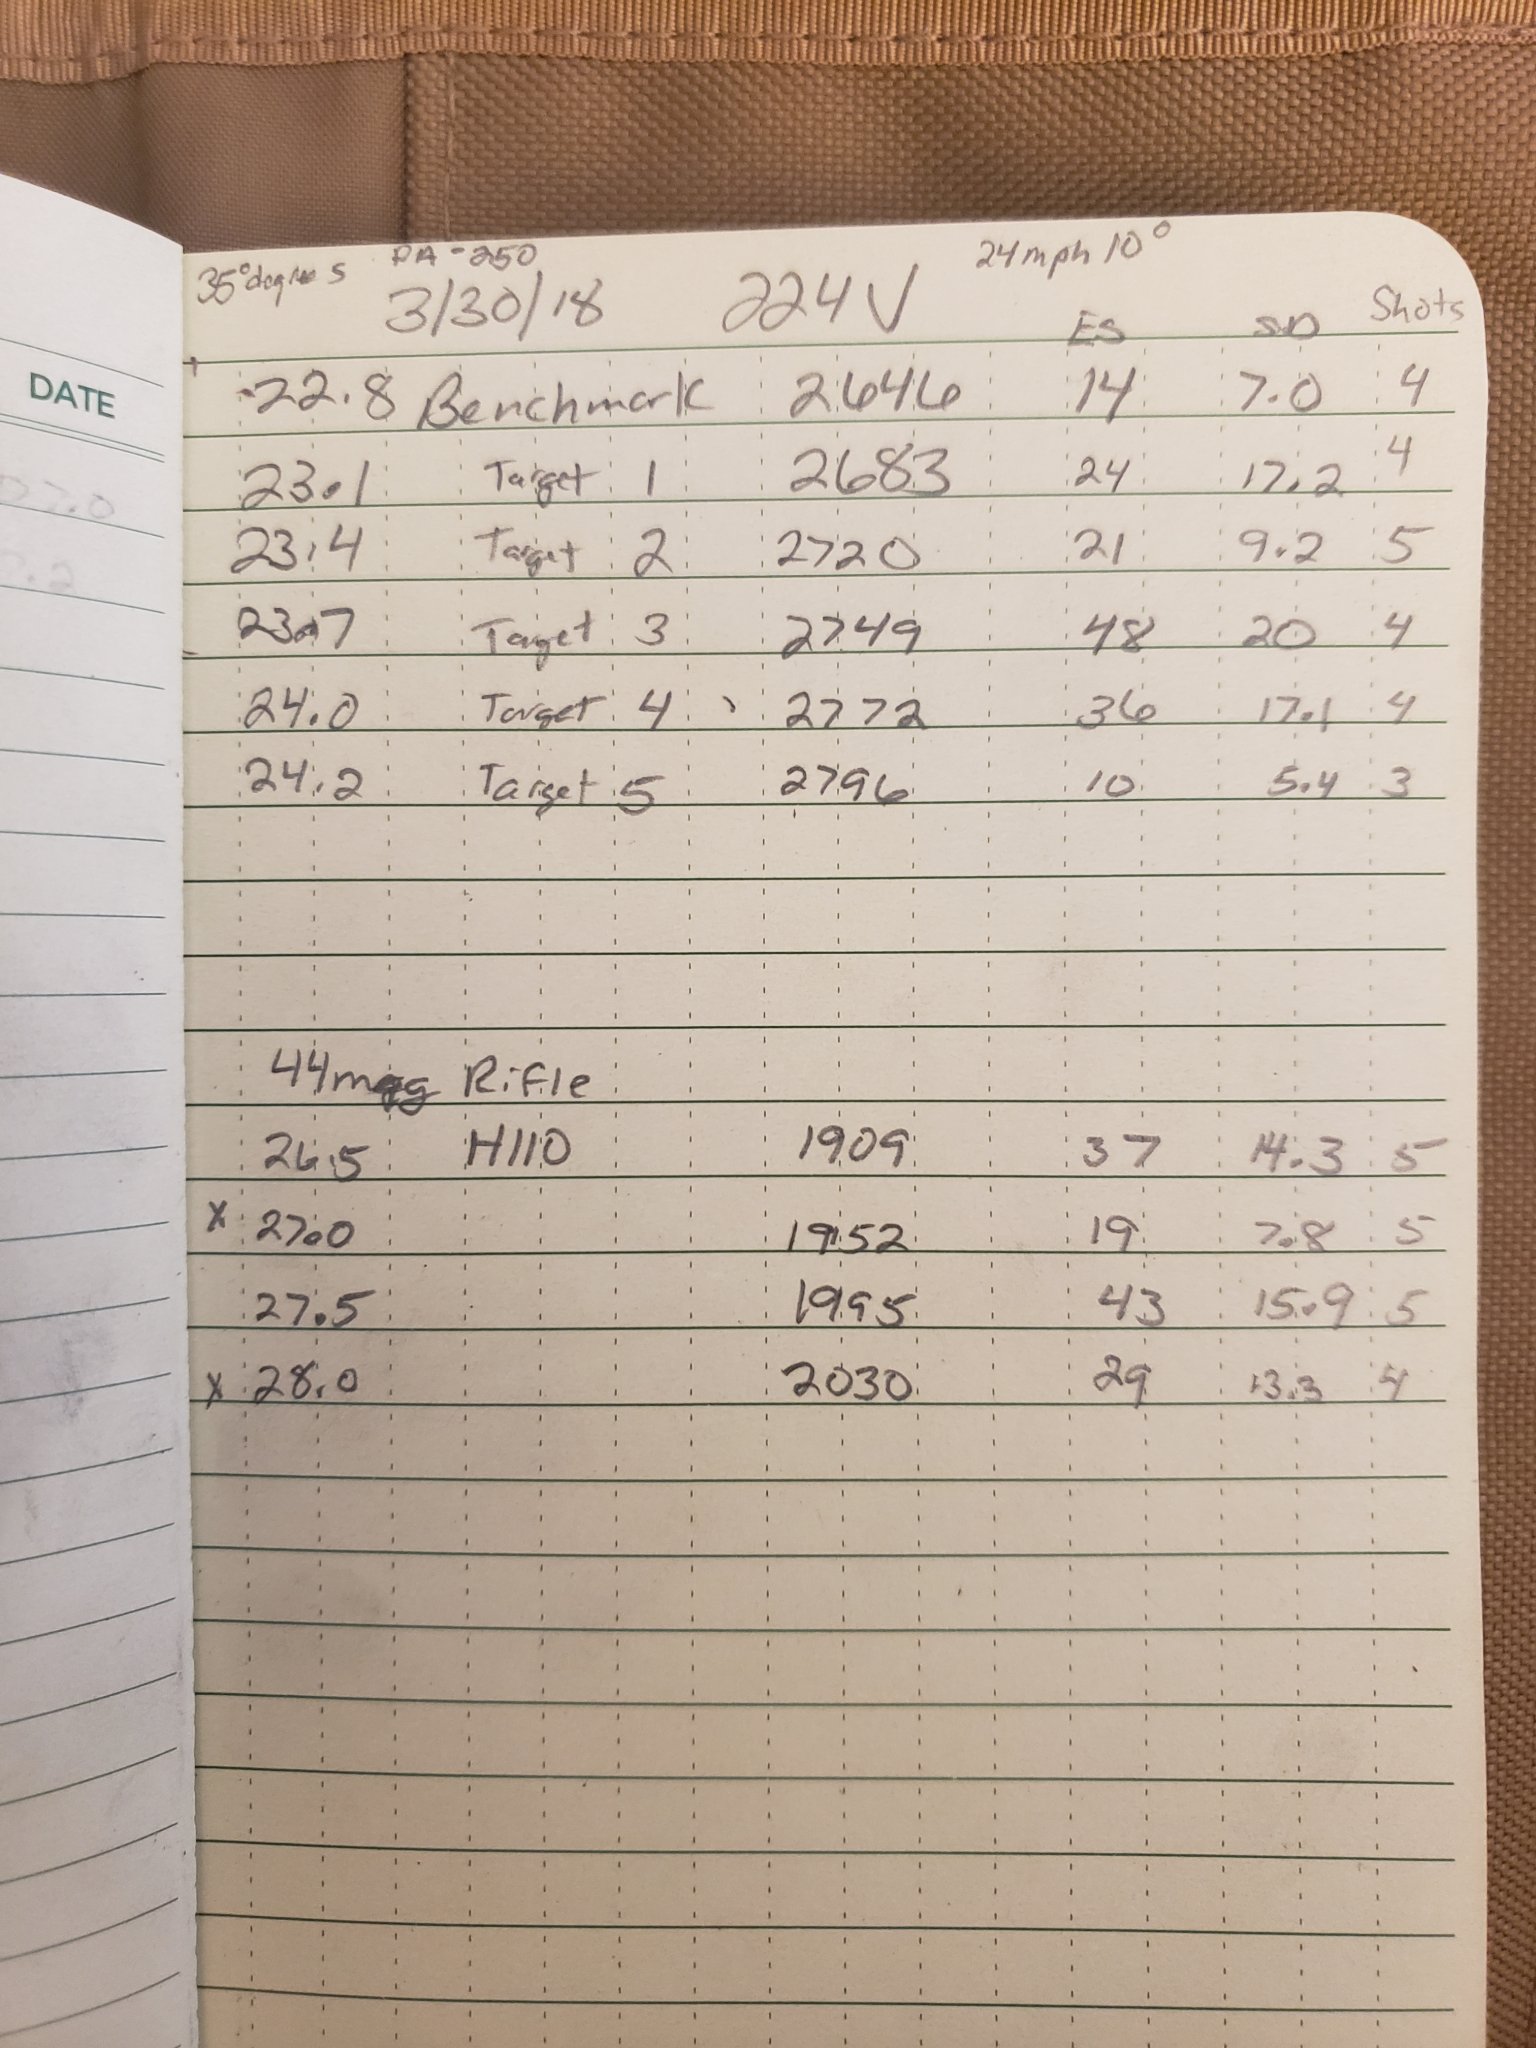 DATE
35° degrees DA -250 24mph 10°
3/30/18 224V ES SD Shots
22.8 Benchmark 2646 14 7.0 4
23.1 Target 1 2683 24 17.2 4
23.4 Target 2 2720 21 9.2 5
23.7 Target 3 2749 48 20 4
24.0 Target 4 2772 36 17.1 4
24.2 Target 5 2796 10 5.4 3
44mag Rifle
26.5 H110 1909 37 14.3 5
x 27.0 1952 19 7.8 5
27.5 1995 43 15.9 5
x 28.0 2030 29 13.3 4